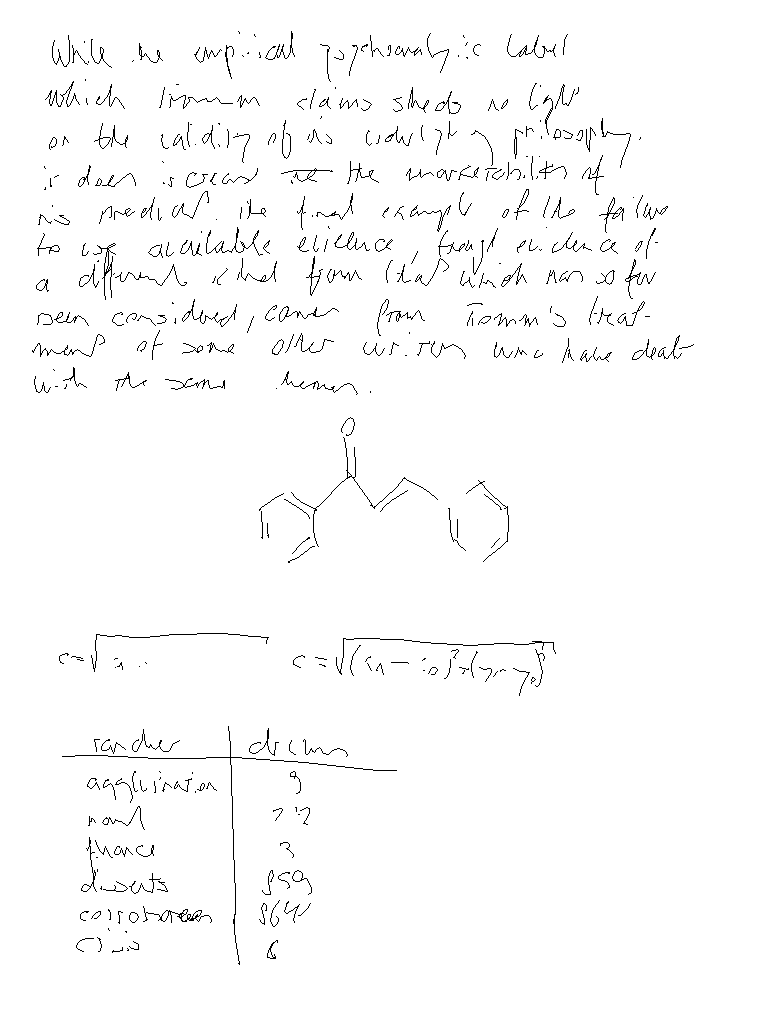 While the empirical psychoanalytic label
which Fromm claims sheds no light
on the validity of his underlying philosophy,
it does increase the marketability of
his product. The final example of the failure
to use available evidence, though evidence of
a different kind from that which has so far
been considered, comes from Fromm's treat-
ment of some other writers who have dealt
with the same themes.
O
c = √
c = √((x₁ - x₀)² + (y₁ - y₀)²)
agglutination 9
finance 3
dissents 859
864
6